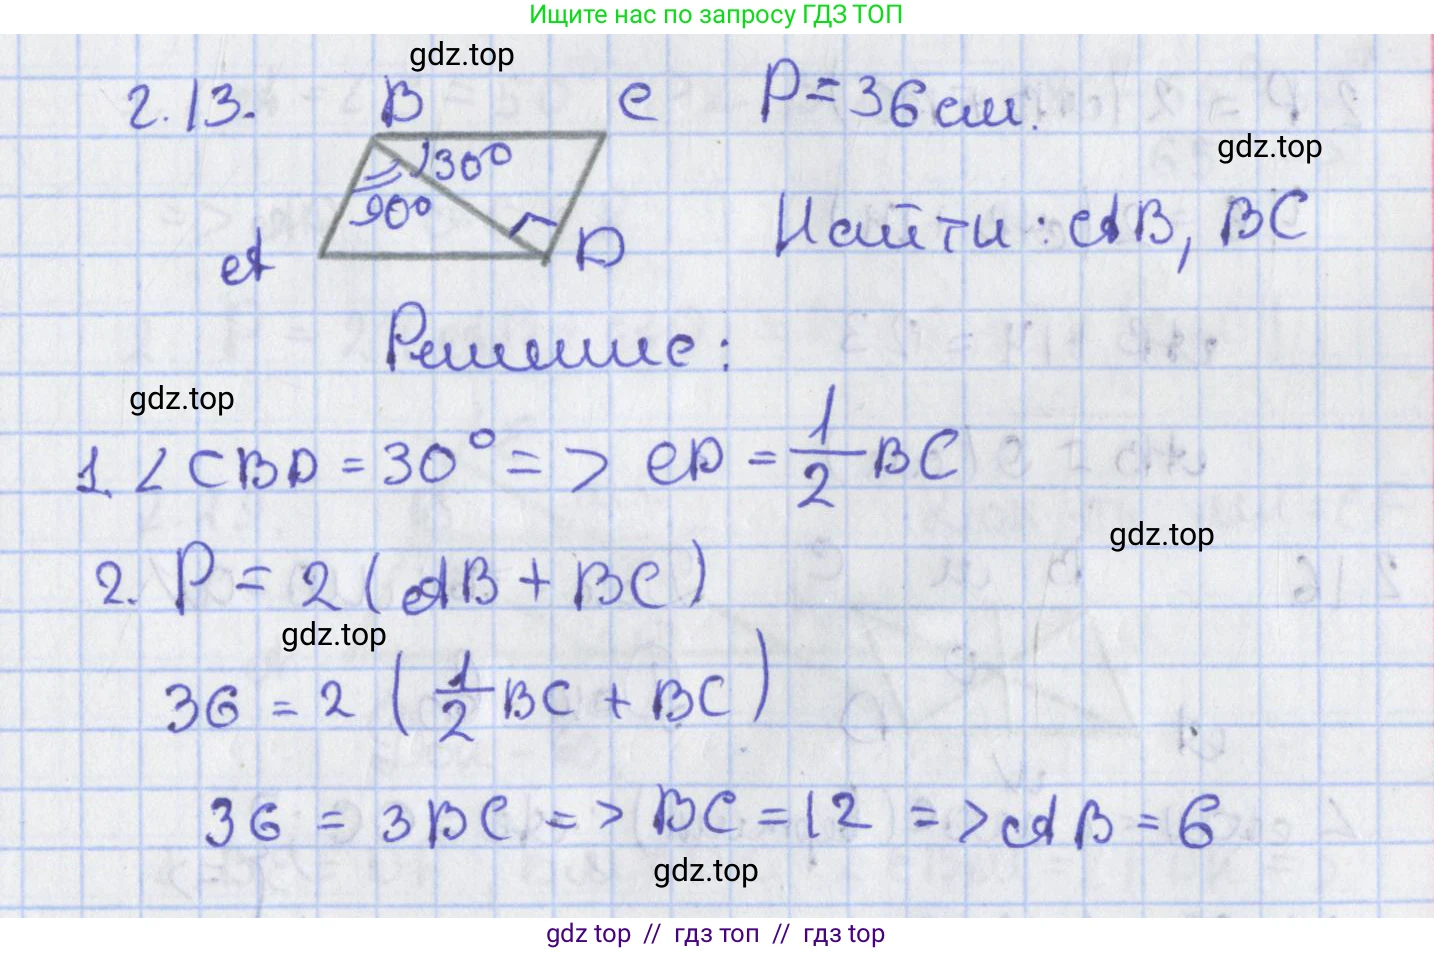 Ищите нас по запросу ГДЗ ТОП
gdz.top
2.13. B C P = 36 см.
30°
gdz.top
90°
A D Найти: AB, BC
Решение:
gdz.top
1. ∠CBD = 30° => CD = 1/2 BC
gdz.top
2. P = 2 (AB + BC)
gdz.top
36 = 2 (1/2 BC + BC)
36 = 3BC => BC = 12 => AB = 6
gdz.top
gdz top // гдз топ // гдз top